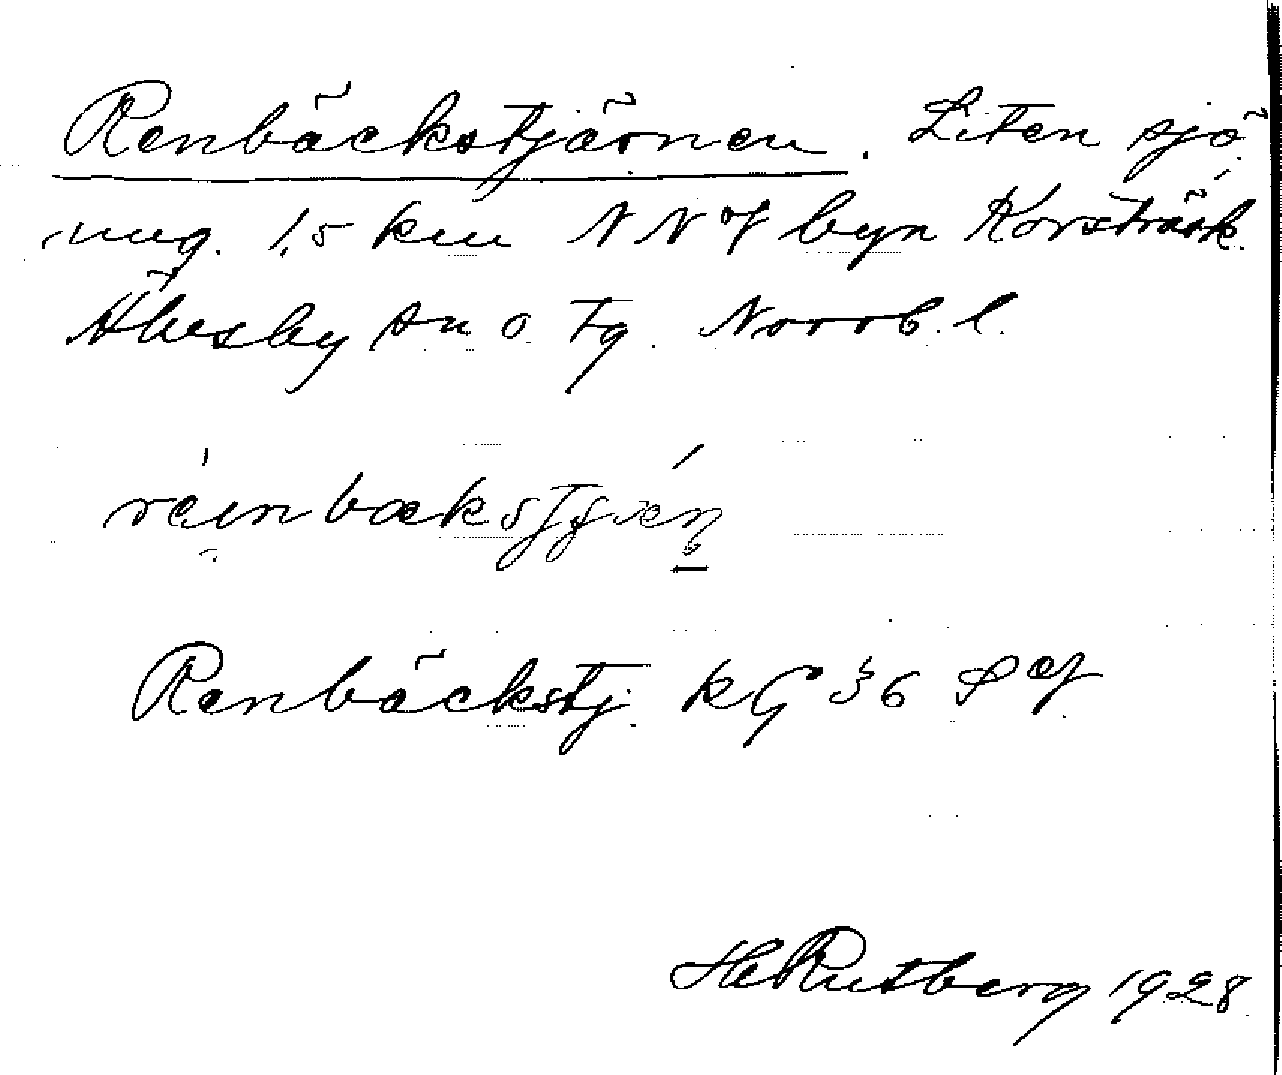 Renbäckstjärnen. Liten sjö
ung. 1,5 km NNV byn Korsträsk.
Älvsby sn o tg. Norrb. l.
Renbäckstj. KG 36 SV
H Rutberg 1928